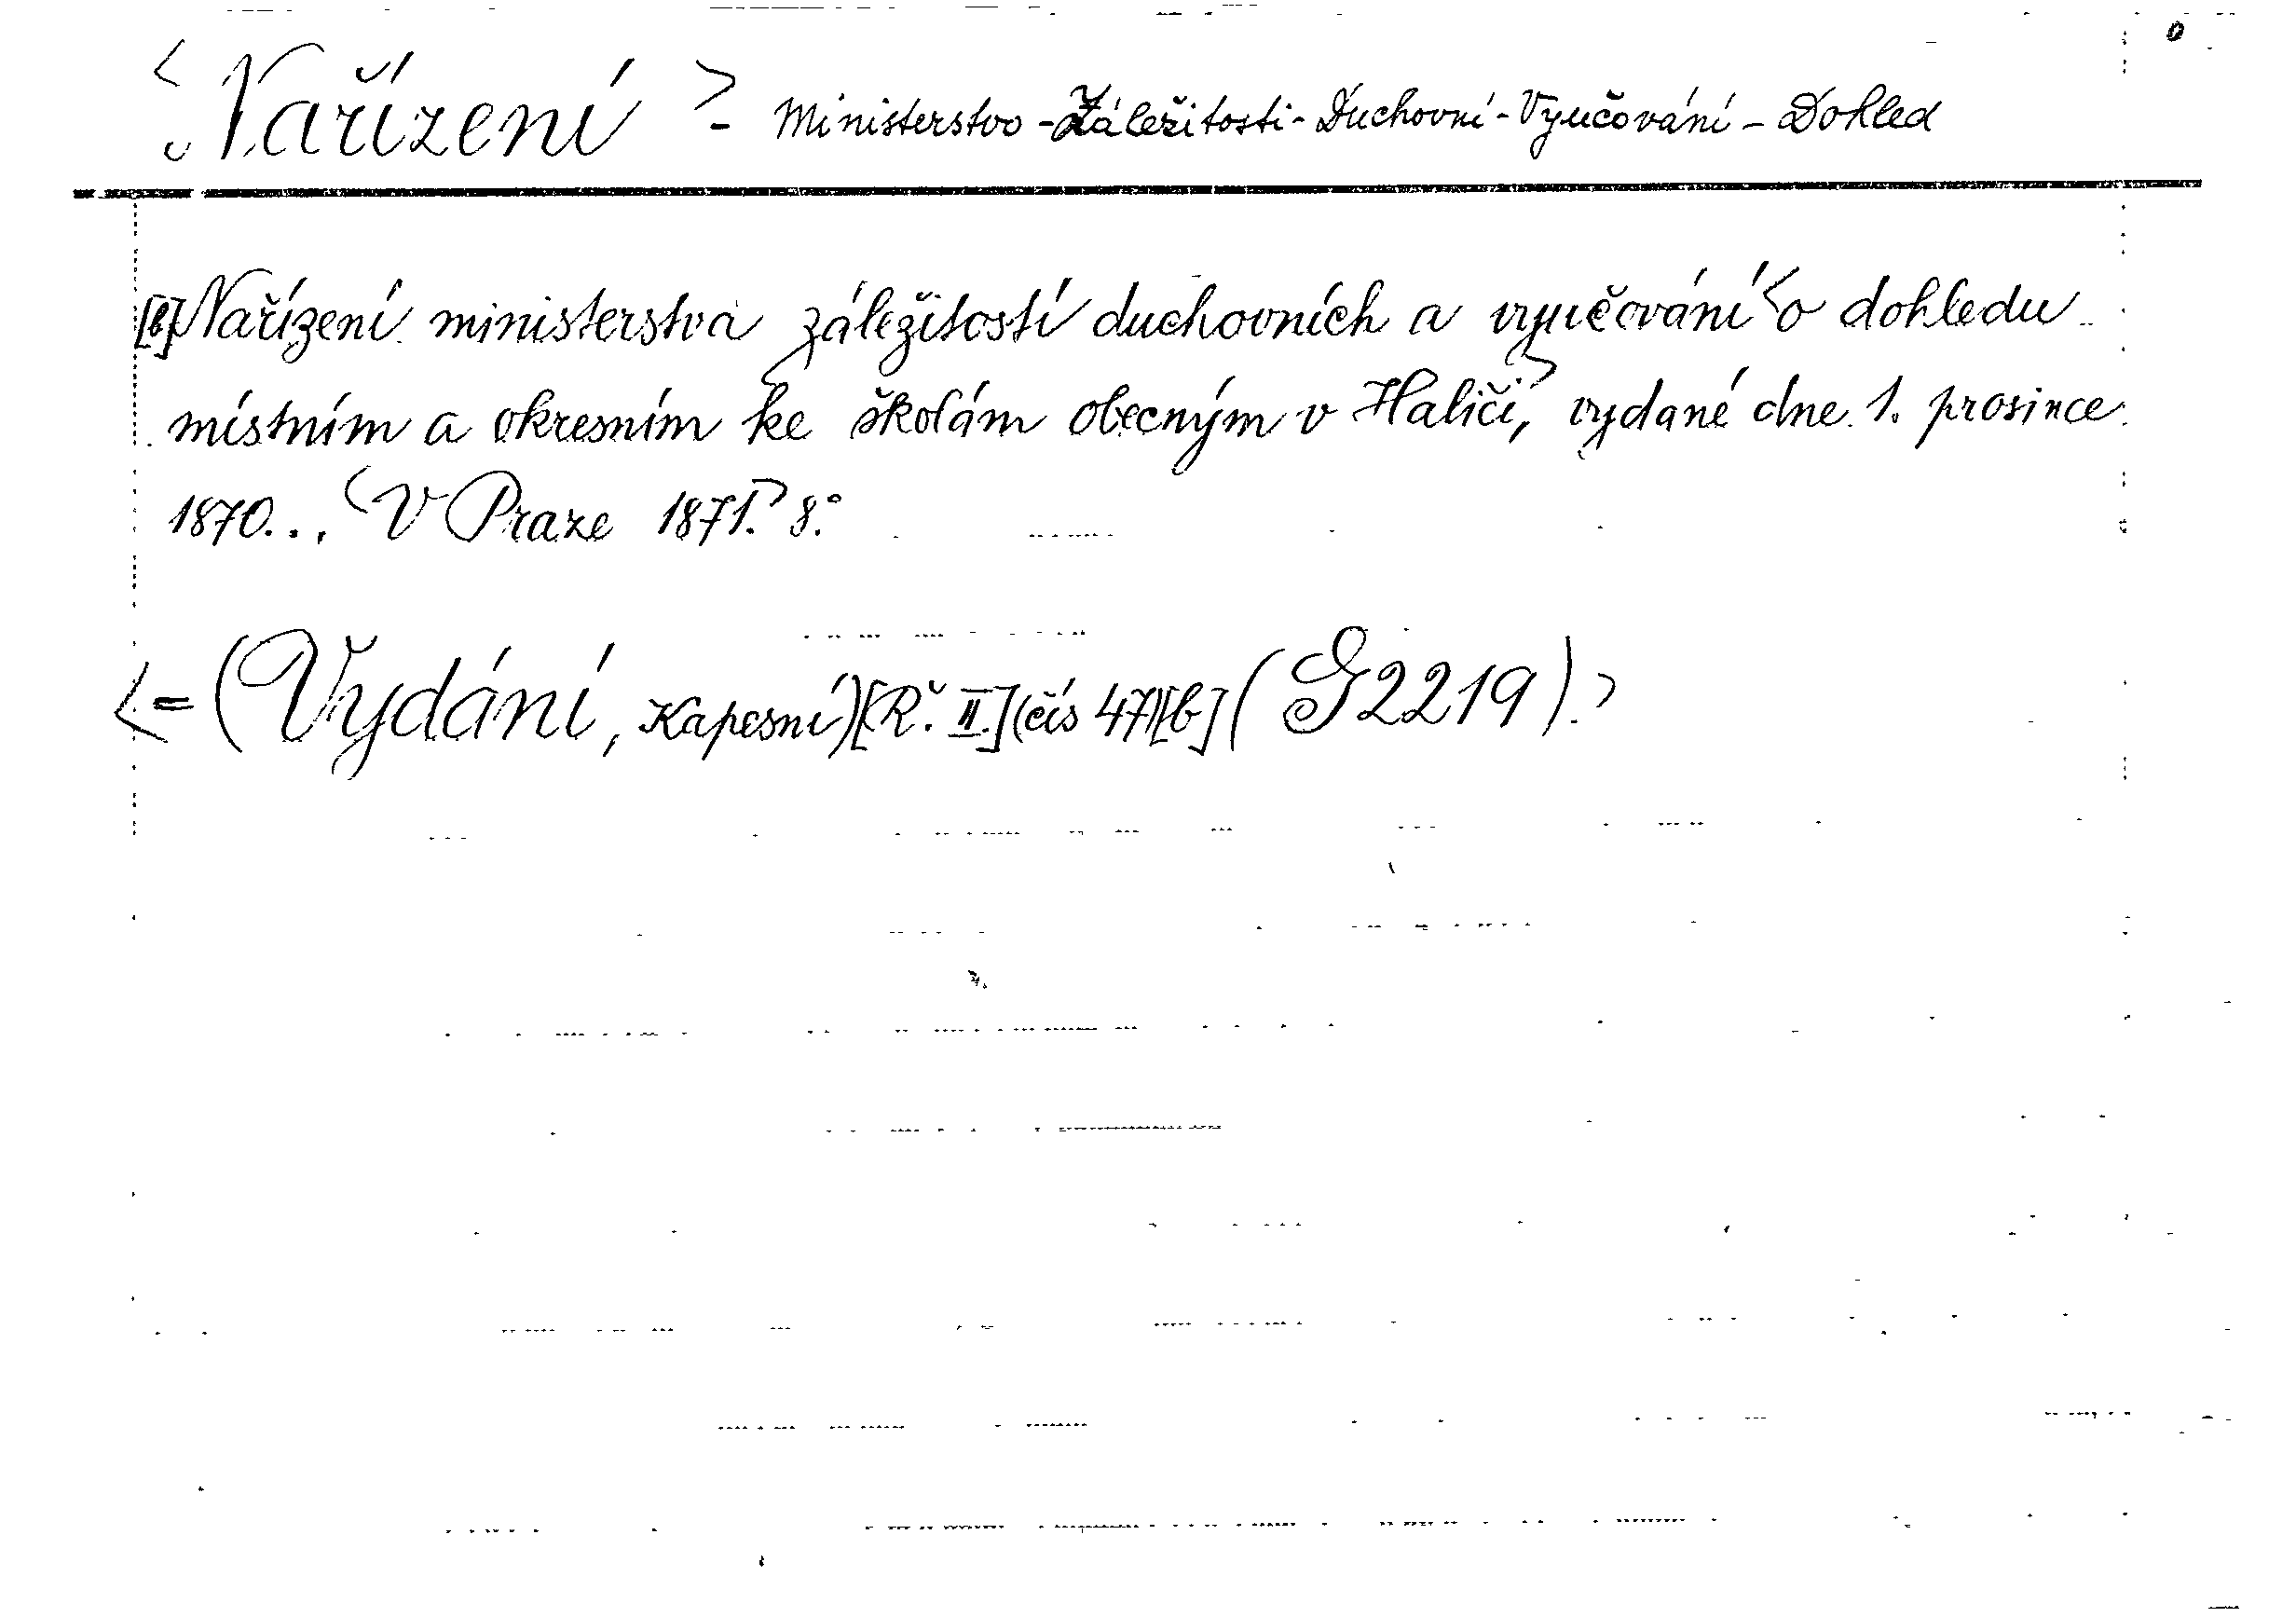 <Nařízení> - Ministerstvo - Záležitosti - Duchovní - Vyučování - Dohled
[b] Nařízení ministerstva záležitostí duchovních a vyučování <o dohledu
místním a okresním ke školám obecným v Haliči,> vydané dne 1. prosince
1870... <V Praze 1871.> 8.°
<= (Vydání, Kapesní) [Ř. II.] (čís 47) [b] (G 2219).>